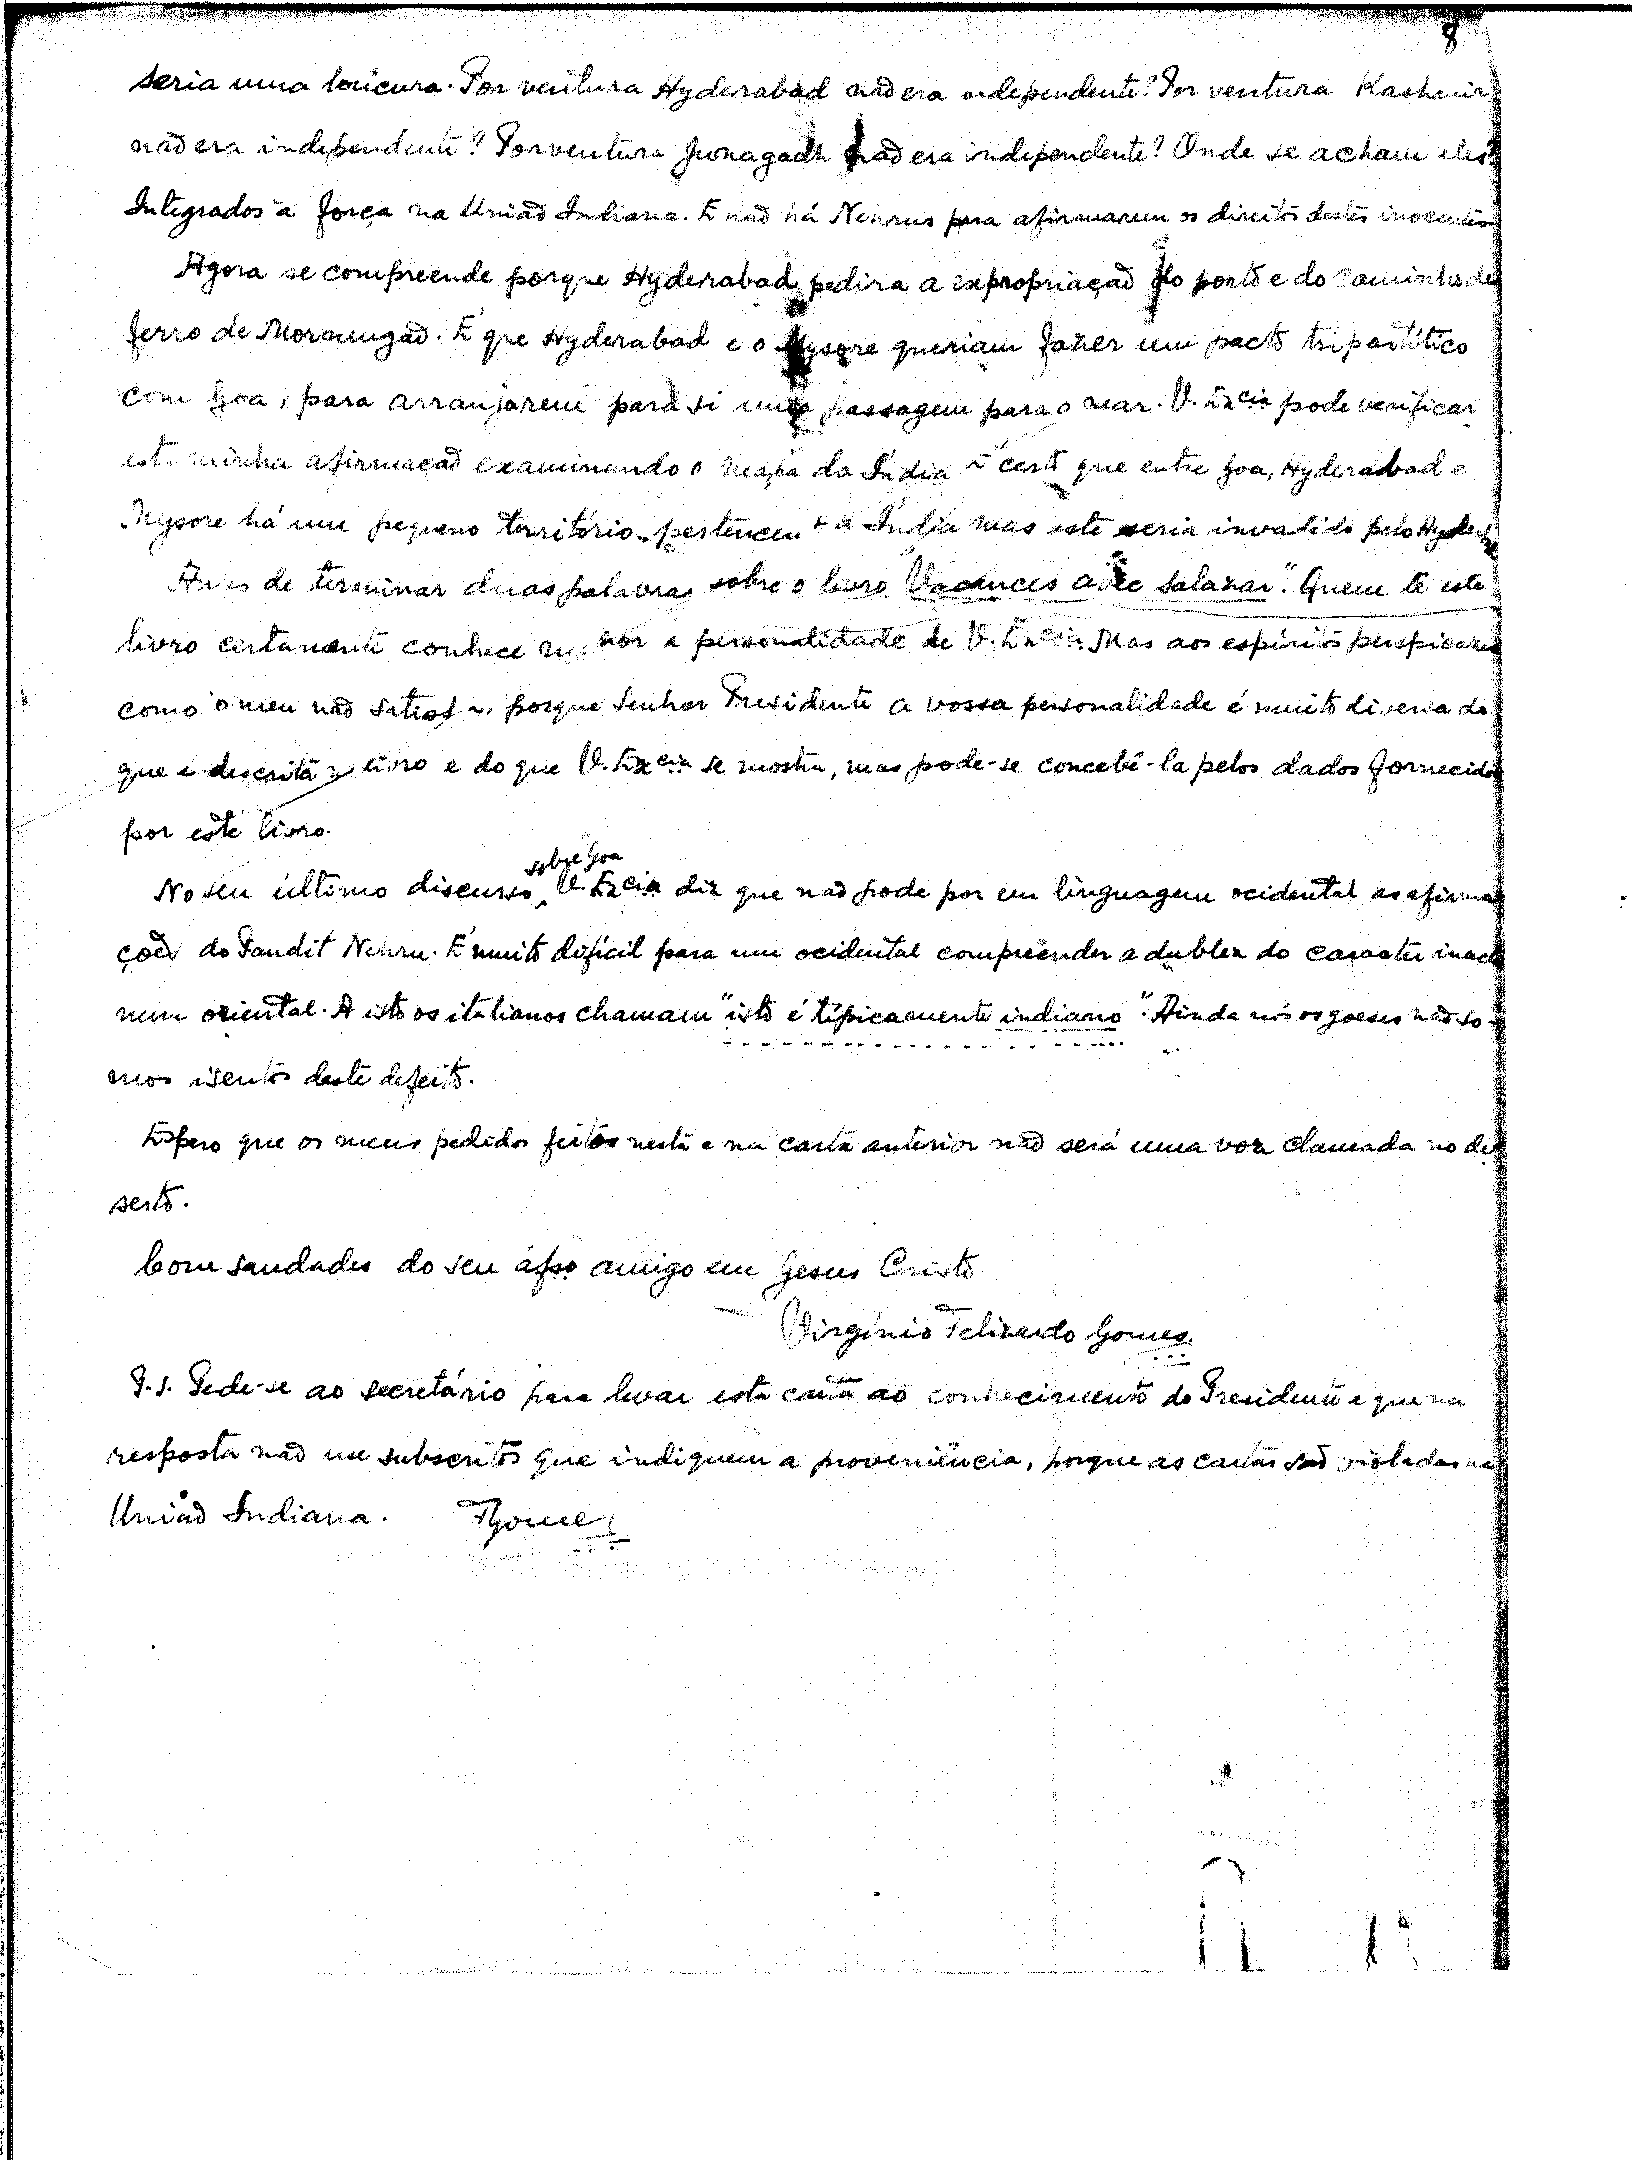 8
seria uma loucura. Por ventura Hyderabad não era independente? Por ventura Kashmir
não era independente? Porventura Junagadh não era independente? Onde se acham eles?
Integrados à força na União Indiana. E não há Nehrus para afirmarem os direitos destes inocentes
Agora se compreende porque Hyderabad pedira a expropriação do porto e do caminho de
ferro de Mormugão. É que Hyderabad e o Mysore queriam fazer um pacto tripartítico
com Goa, para arranjarem para si uma passagem para o mar. V. Excia pode verificar
esta minha afirmação examinando o mapa da Índia É certo que entre Goa, Hyderabad e
Mysore há um pequeno território pertencente à Índia mas este seria invadido pelo Hyder
Antes de terminar duas palavras sobre o livro "Vacances avec Salazar". Quem lê este
livro certamente conhece melhor a personalidade de V. Excia. Mas aos espíritos perspicazes
como o meu não satisfaz, porque Senhor Presidente a vossa personalidade é muito diversa do
que é descrita livro e do que V. Excia se mostra, mas pode-se concebê-la pelos dados fornecidos
por este livro.
No seu último discurso sobre Goa V. Excia diz que não pode por em linguagem ocidental as afirma
ções do Pandit Nehru. É muito difícil para um ocidental compreender a dublez do caracter inact
num oriental. A isto os italianos chamam "isto é tìpicamente indiano". Ainda nós os goeses não so-
mos isentos deste defeito.
Espero que os meus pedidos feitos nesta e na carta anterior não será uma voz clamada no de
serto.
Com saudades do seu afso amigo em Jesus Cristo
Virgínio Felizardo Gomes
P.S. Pede-se ao secretário para levar esta carta ao conhecimento do Presidente e que na
resposta não use subscritos que indiquem a proveniência, porque as cartas são violadas na
União Indiana. FGomes